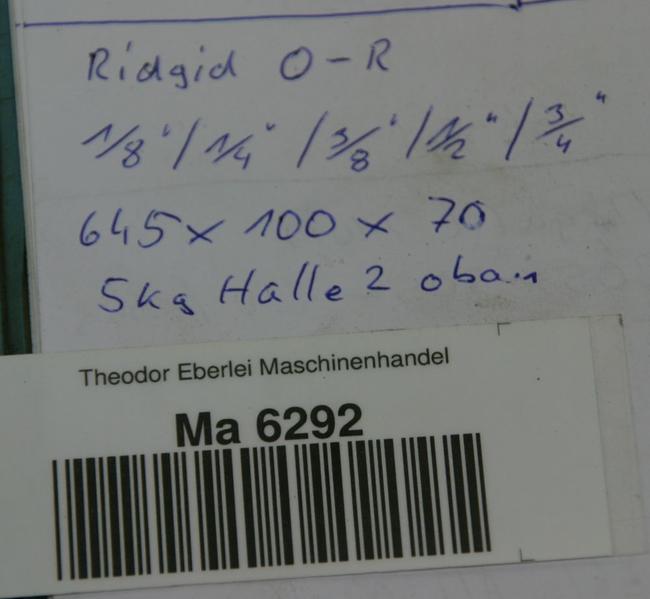 Ridgid O-R
1/8" / 1/4" / 3/8" / 1/2" / 3/4"
645 x 100 x 70
5kg Halle 2 oben
Theodor Eberlei Maschinenhandel
Ma 6292